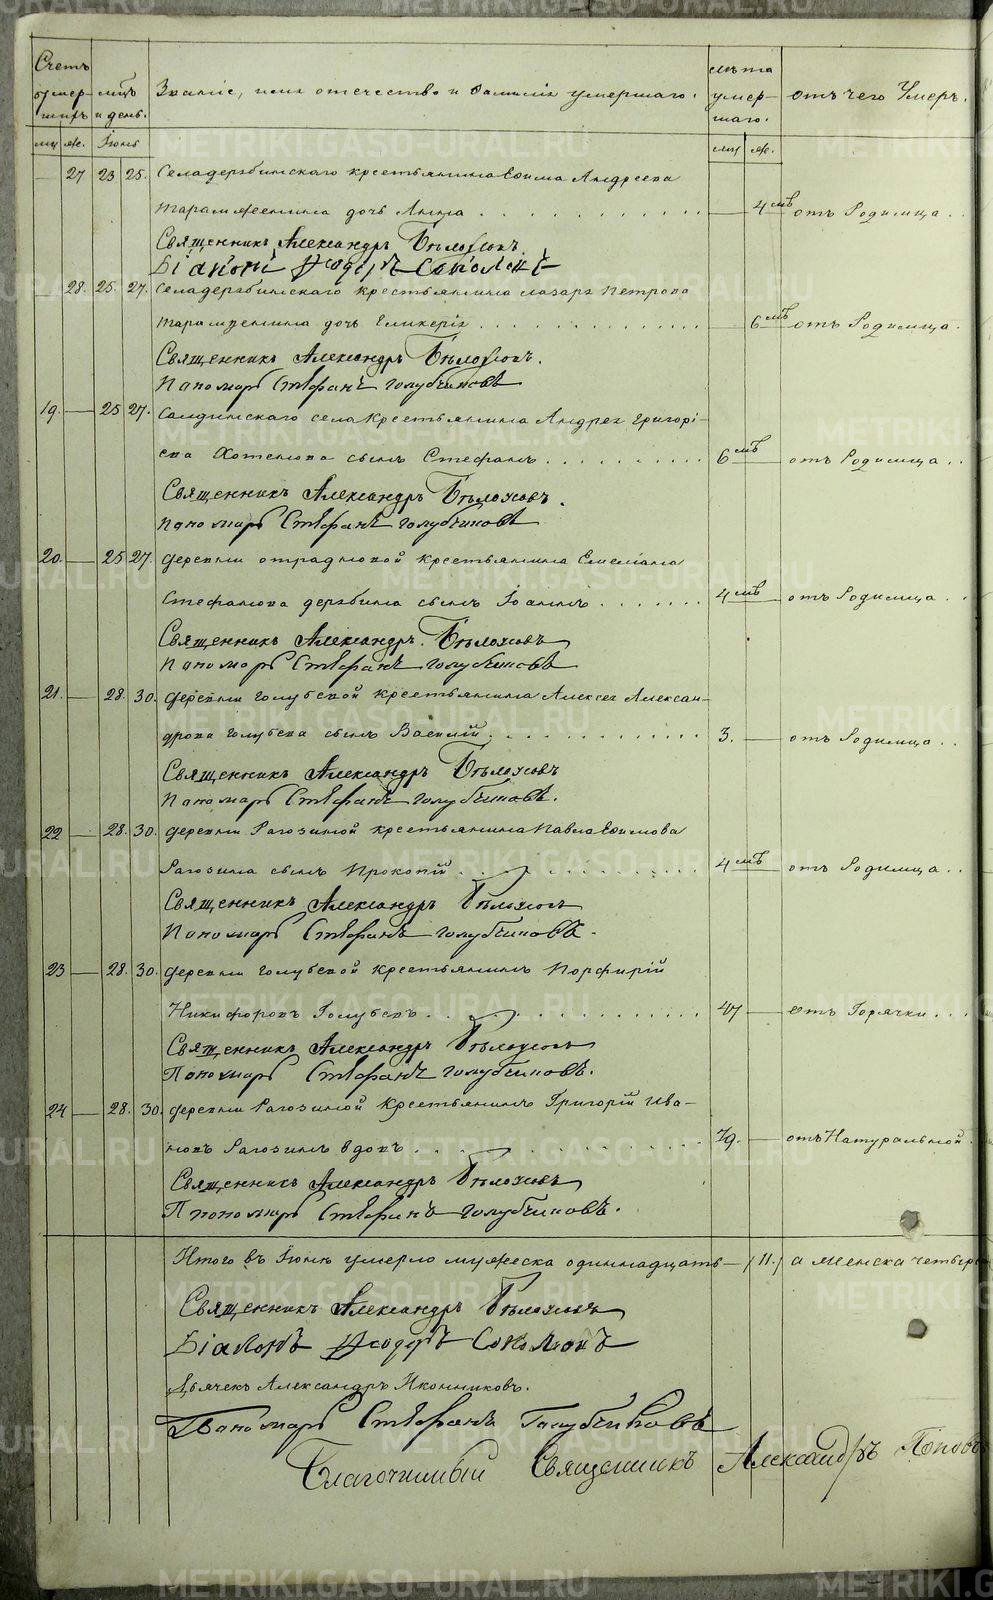 Счетъ умер-шихъ
мцъ и день.
Званіе, имя отечество и фамилія умершаго.
лѣта умер-шаго.
отъ чего Умеръ.
мц ж. Іюнь мц ж.
27 23 25. Села дерябинскаго крестьянина Ефима Андреева
Тарамженина дочь Анна 4 мѣ отъ Родимца
Священникъ Александръ Бѣлоусовъ
Діаконъ Ѳеодоръ Соколовъ
28. 25. 27. Села дерябинскаго крестьянина Лазаря Петрова
Тарамженина дочь Гликерія 6 мѣ отъ Родимца.
Священникъ Александръ Бѣлоусовъ.
Пономарь Стефанъ Голубчиковъ
19. 25 27. Салдинскаго села Крестьянина Андрея Григорі-
ева Хотенова сынъ Стефанъ 6 мѣ отъ Родимца
Священникъ Александръ Бѣлоусовъ.
Пономарь Стефанъ Голубчиковъ
20. 25 27. деревни отрадновой Крестьянина Емеліана
Стефанова дерябина сынъ Іоаннъ 4 мѣ отъ Родимца
Священникъ Александръ Бѣлоусовъ
Пономарь Стефанъ Голубчиковъ
21. 28. 30. деревни Голубевой Крестьянина Алексея Алексан-
дрова Голубева сынъ Василій 3. отъ Родимца
Священникъ Александръ Бѣлоусовъ
Пономарь Стефанъ Голубчиковъ.
22 28. 30. деревни Рагозиной крестьянина Павла Ефимова
Рагозина сынъ Прокопій 4 мѣ отъ Родимца
Священникъ Александръ Бѣлоусовъ
Пономарь Стефанъ Голубчиковъ.
23 28. 30. деревни Голубевой Крестьянинъ Порфирій
Никифоровъ Голубевъ 47 отъ Горячки
Священникъ Александръ Бѣлоусовъ
Пономарь Стефанъ Голубчиковъ.
24 28. 30. деревни Рагозиной Крестьянинъ Григорій Ива-
новъ Рагозинъ вдовъ 79. отъ Натуральной
Священникъ Александръ Бѣлоусовъ
Пономарь Стефанъ Голубчиковъ.
Итого въ Іюнѣ умерло мужеска одиннадцать (11.) а женска четыре
Священникъ Александръ Бѣлоусовъ
Діаконъ Ѳеодоръ Соколовъ
Дьячекъ Александръ Иконниковъ.
Пономарь Стефанъ Голубчиковъ
Благочинный Священникъ Александръ Поповъ
METRIKI.GASO-URAL.RU